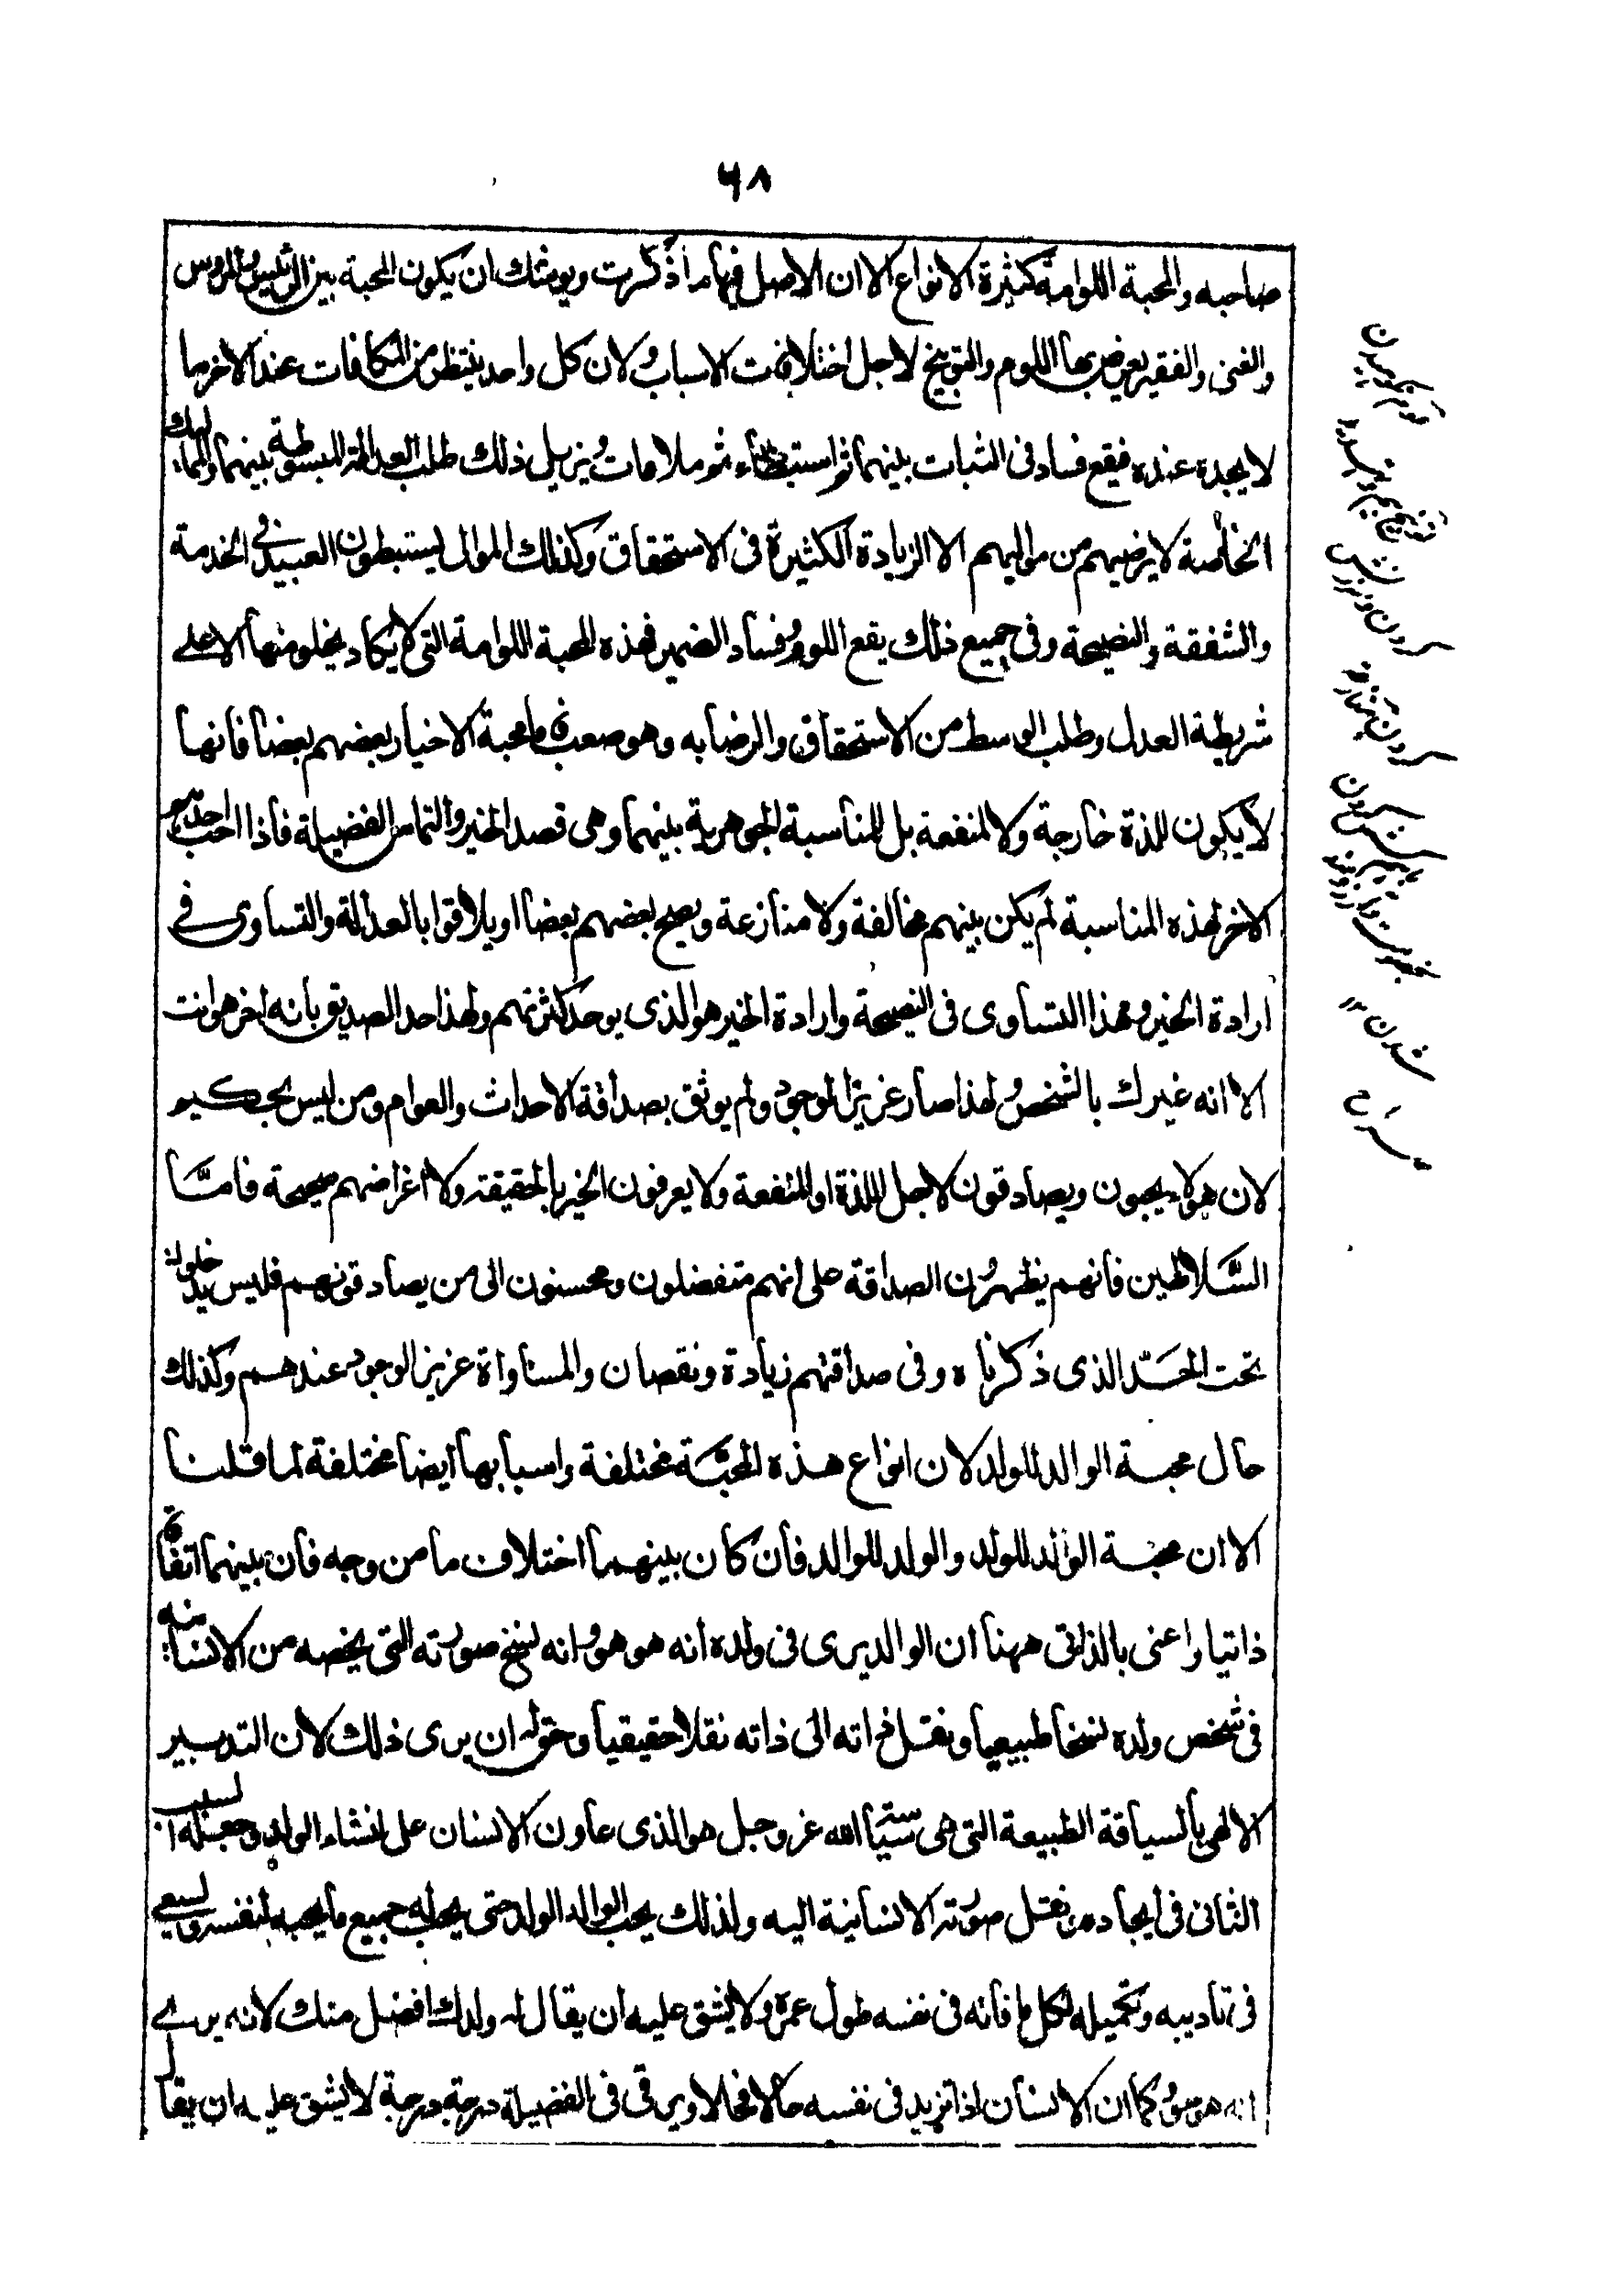 ٦٨
صاحبه والمحبة اللوامة كثيرة الانواع الا ان الاصل فيها ما ذكرت ويوشك ان يكون المحبة بين الرئيس والمروس
والغنى والفقير يعرض بها اللوم والتوبيخ لاجل اختلافات الاسباب ولان كل واحد ينتظر من المكافات عند الاخر ما
لا يجده عنده فيقع فساد فى النيات بينهما ثم استبطاء ثم ملامات ويزيل ذلك طلب العدالة المبسوطة بينهما والمماليك
الخاصة لا يرضيهم من مواليهم الا الزيادة الكثيرة فى الاستحقاق وكذلك الموالى يستبطون العبيد فى الخدمة
والشفقة والنصيحة وفى جميع ذلك يقع اللوم وفساد الضمير فهذه المحبة اللوامة التى لا يكاد يخلو منها الا على
شريطة العدل وطلب الوسط من الاستحقاق والرضا به وهو صعب فاما محبة الاخيار بعضهم بعضا فانها
لا يكون للذة خارجة ولا لمنفعة بل للمناسبة الجوهرية بينهما وهى قصد الخير والتماس الفضيلة فاذا احب احدهم
الاخر لهذه المناسبة لم يكن بينهم مخالفة ولا منازعة ويصح بعضهم بعضا او يلاقوا بالعدالة والتساوى فى
ارادة الخير وهذا التساوى فى النصيحة وارادة الخير هو الذى يوحد كثرتهم ولهذا حد الصديق بانه اخر هو انت
الا انه غيرك بالشخص ولهذا صار عزيز الوجود ولم يوثق بصداقة الاحداث والعوام ومن ليس بحكيم
لان هولاء يحبون ويصادقون لاجل اللذة او المنفعة ولا يعرفون الخير بالحقيقة ولا اغراضهم صحيحة فامّا
السّلاطين فانهم يظهرون الصداقة على انهم متفضلون ومحسنون الى من يصادقونهم فليس يدخلون
تحت الحدّ الذى ذكرناه وفى صداقتهم زيادة ونقصان والمساواة عزيز الوجود عندهم وكذلك
حال محبة الوالد للولد لان انواع هذه المحبّة مختلفة واسبابها ايضا مختلفة لما قلنا
الا ان محبة الوالد للولد والولد للوالد فان كان بينهما اختلاف ما من وجه فان بينهما اتفاقا
ذاتيا واعنى بالذاتى ههنا ان الوالد يرى فى ولده انه هو هو وانه نسخ صورته التى يخصه من الانسانيه
فى شخص ولده نسخا طبيعيا ونقل ذاته الى ذاته نقلا حقيقيا وحق له ان يرى ذلك لان التدبير
الالهى بالسياقة الطبيعة التى هى سياسة الله عز وجل هو الذى عاون الانسان على انشاء الولد وجعله السبب
الثانى فى ايجاده ونقل صورته الانسانية اليه ولذلك يحب الوالد الولد حتى يحب له جميع ما يحبه لنفسه ويسعى
فى تاديبه وتكميله لكل ما فاته فى نفسه طول عمره ولا يشق عليه ان يقال له ولدك افضل منك لانه يرى
انه هو هو وكما ان الانسان اذا تزيد فى نفسه حالا فحالا ويرقى فى الفضيلة درجة درجة لا يشق عليه ان يقال